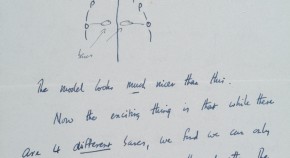 P P
bases
The model looks much nicer than this.
Now the exciting thing is that while there
are 4 different bases, we find we can only
The